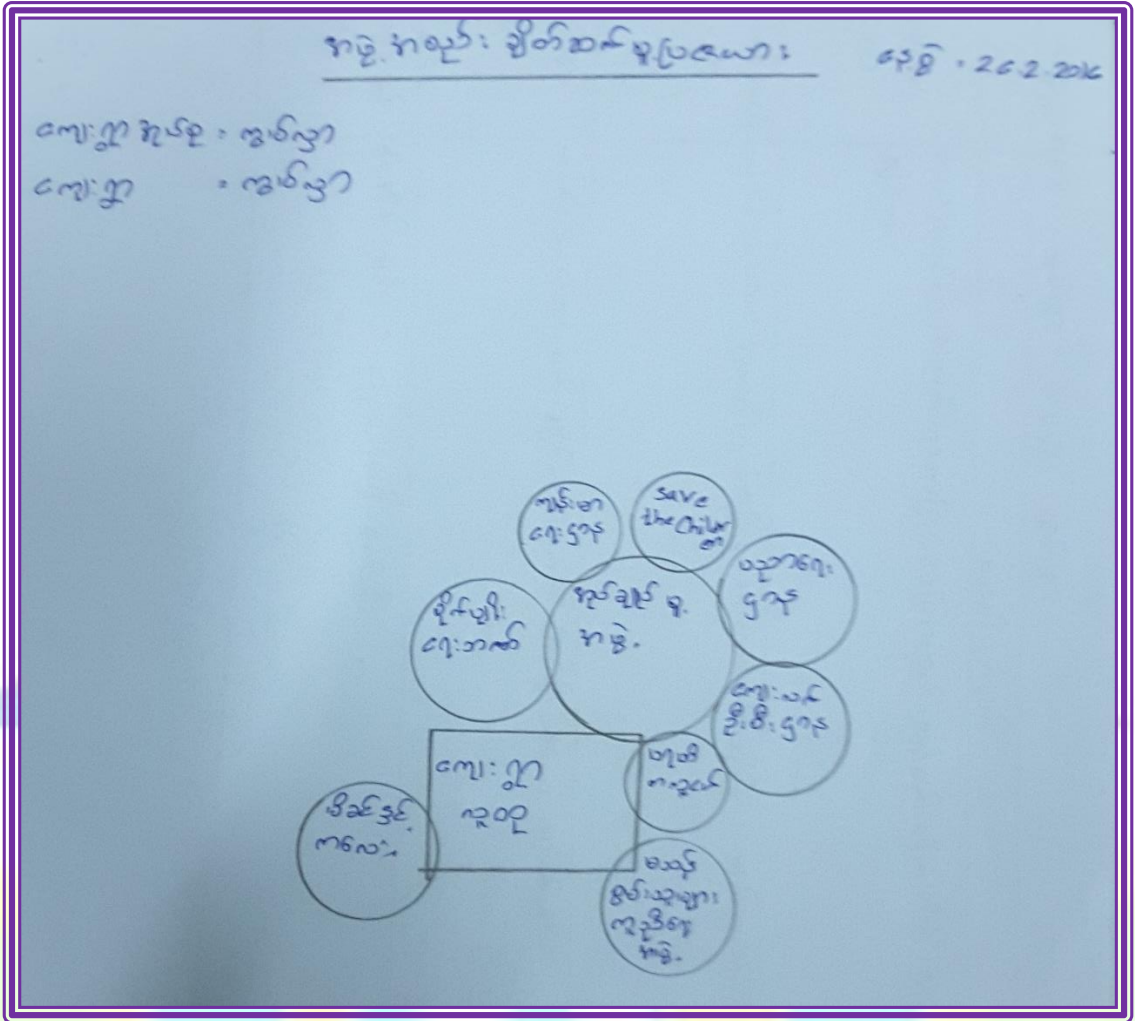 အဖွဲ့အစည်း ချိတ်ဆက်မှုပြဇယား
နေ့စွဲ - 26.2.2016
ကျေးရွာအုပ်စု - ကွယ်လှာ
ကျေးရွာ - ကွယ်လှာ
ကျန်းမာ
ရေးဌာန
Save
the Children
ပညာရေး
ဌာန
အုပ်ချုပ်မှု
အဖွဲ့
စိုက်ပျိုး
ရေးဘဏ်
ကျေးလက်
ဦးစီးဌာန
ကျေးရွာ
လူထု
မိခင်နှင့်
ကလေး
မသန်
စွမ်းသူများ
ကူညီရေး
အဖွဲ့